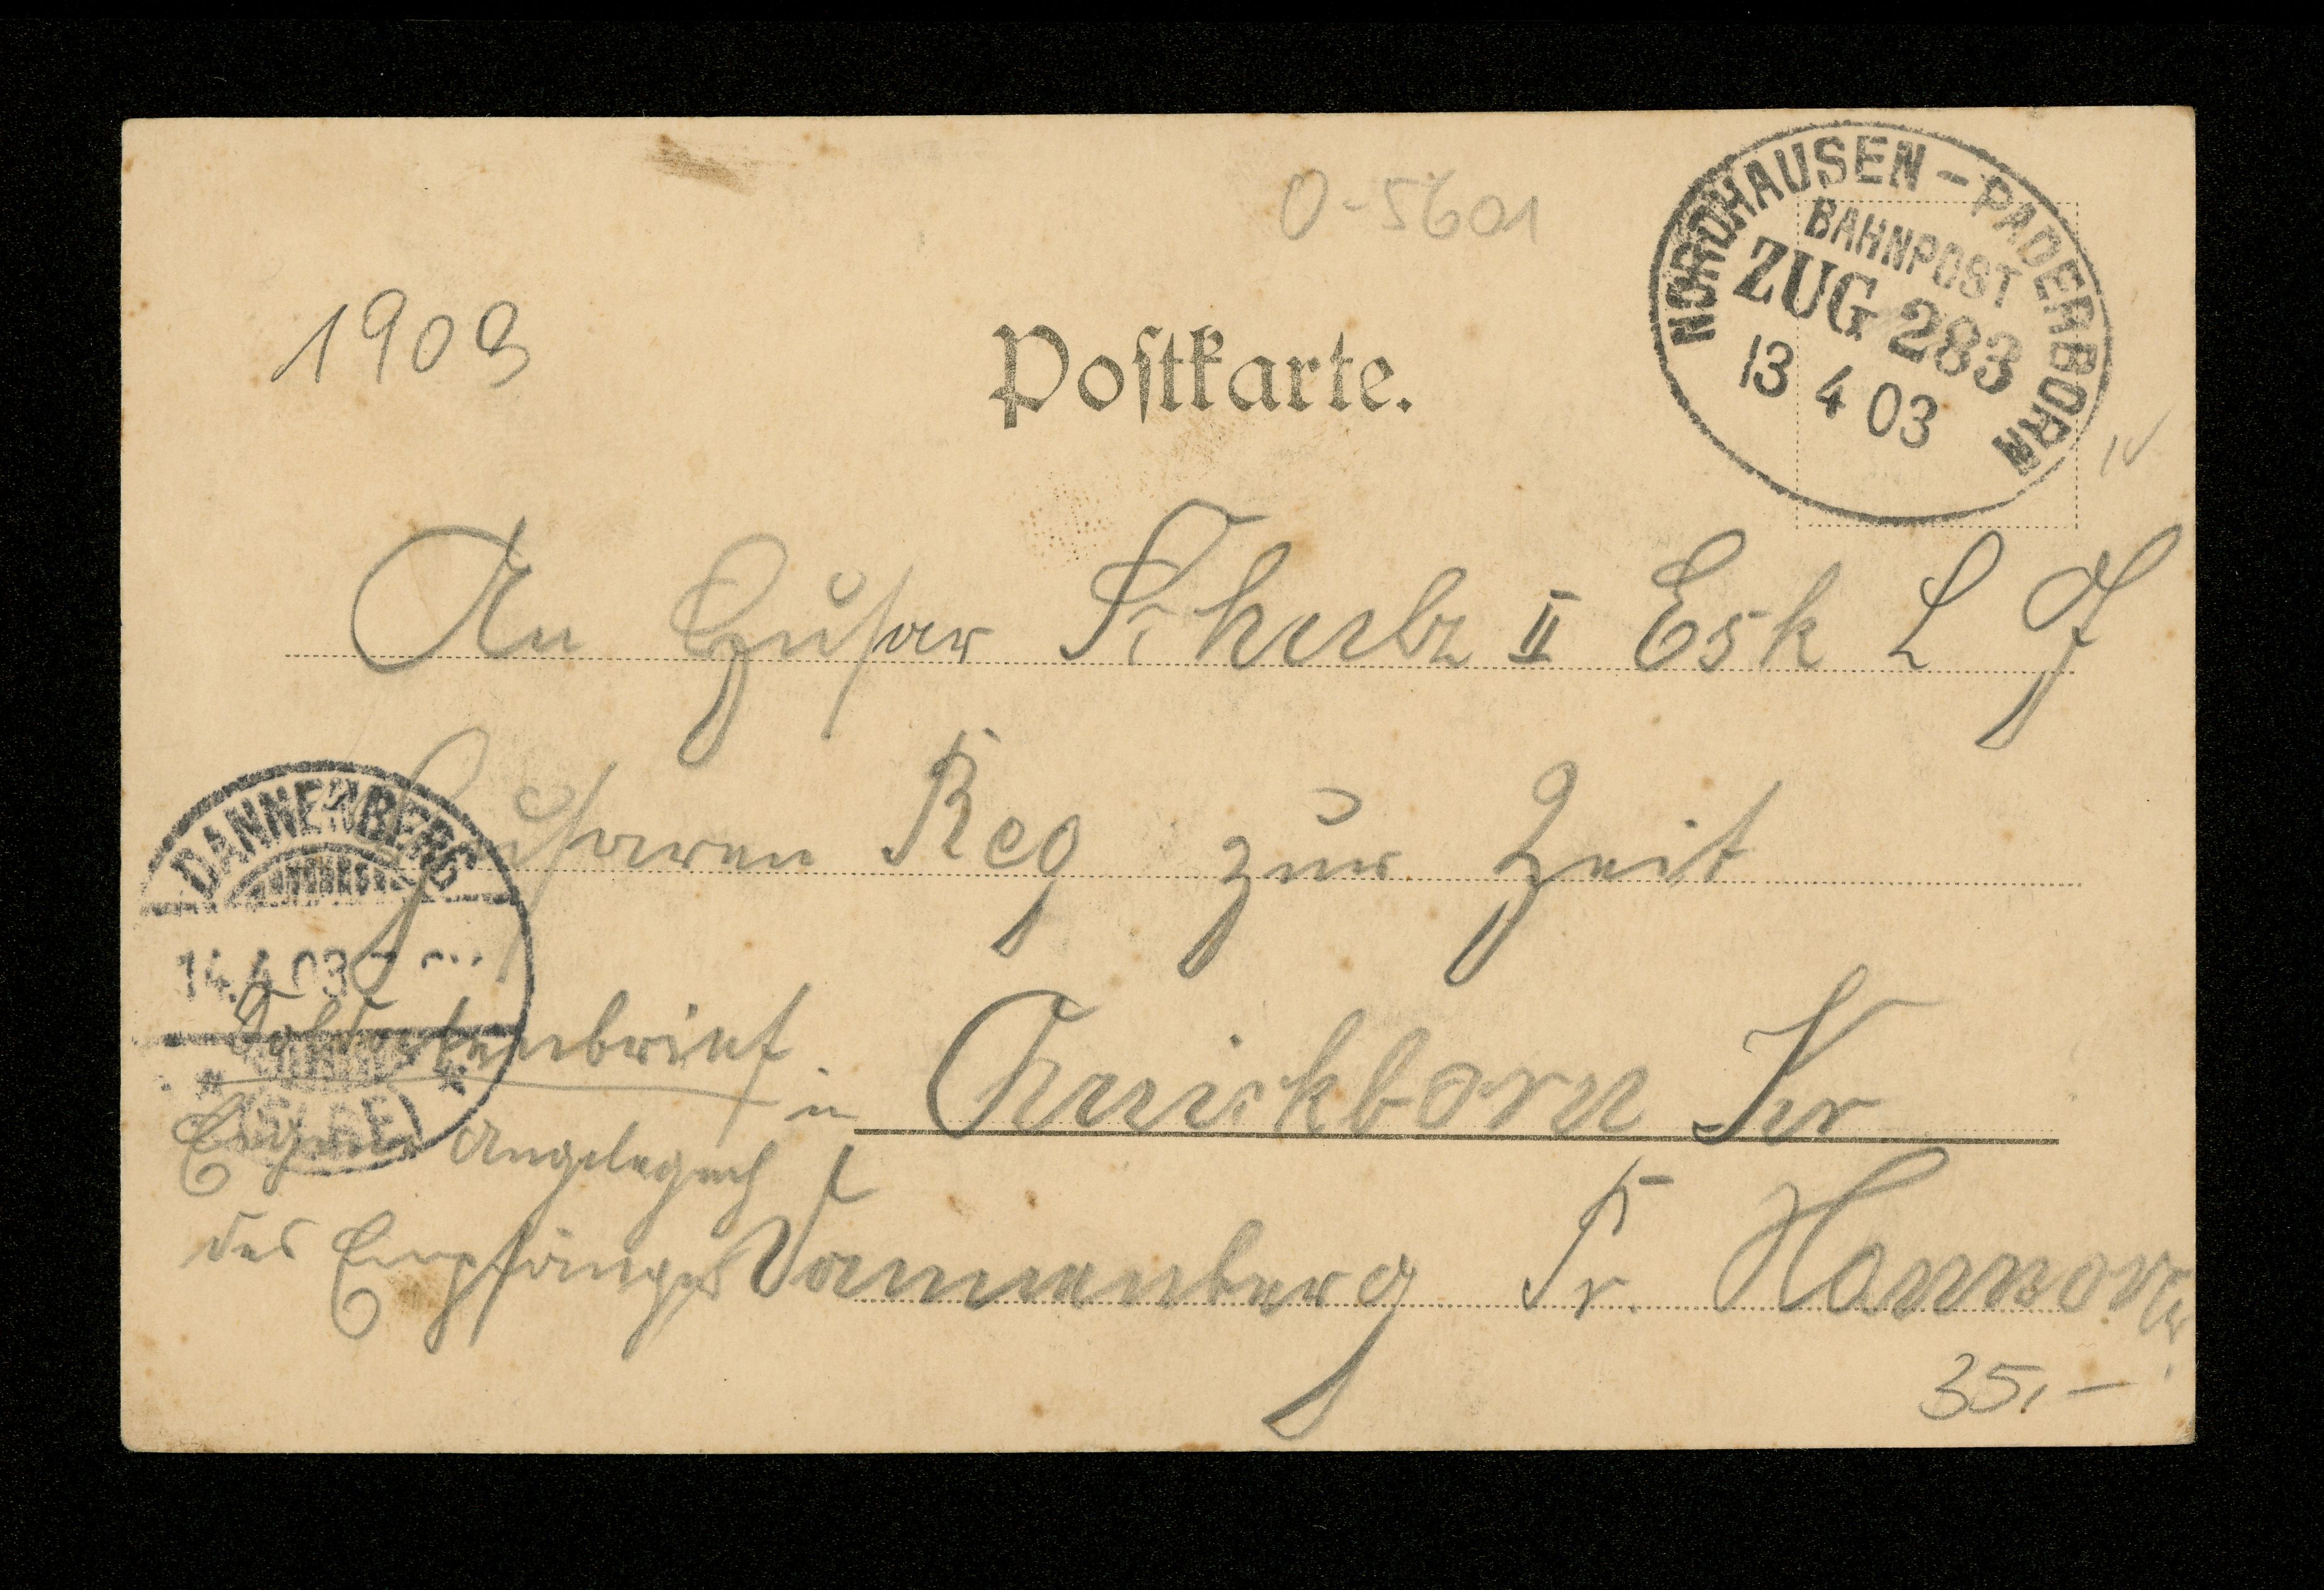 O-5601
NORDHAUSEN-PADERBORN
BAHNPOST
ZUG 283
13 4 03
1903
Postkarte.
An Husar Schulz II Esk L G
Husaren Reg zur Zeit
DANNENBERG
14.4.03
(ELBE)
Soldatenbrief
in Quickborn Kr
Eigene Angelegenh
des Empfängers
Dannenberg Pr. Hannover
35,-